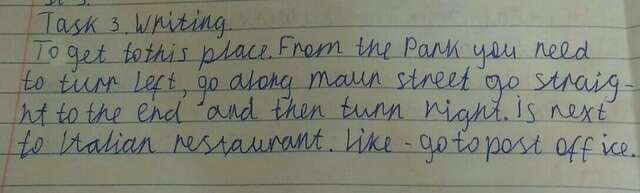 Task 3. Writing.
To get to this place. From the Park you need
to turn left, go along maun street go straig-
ht to the end and then turn right. is next
to Italian restaurant. Like - go to post office.